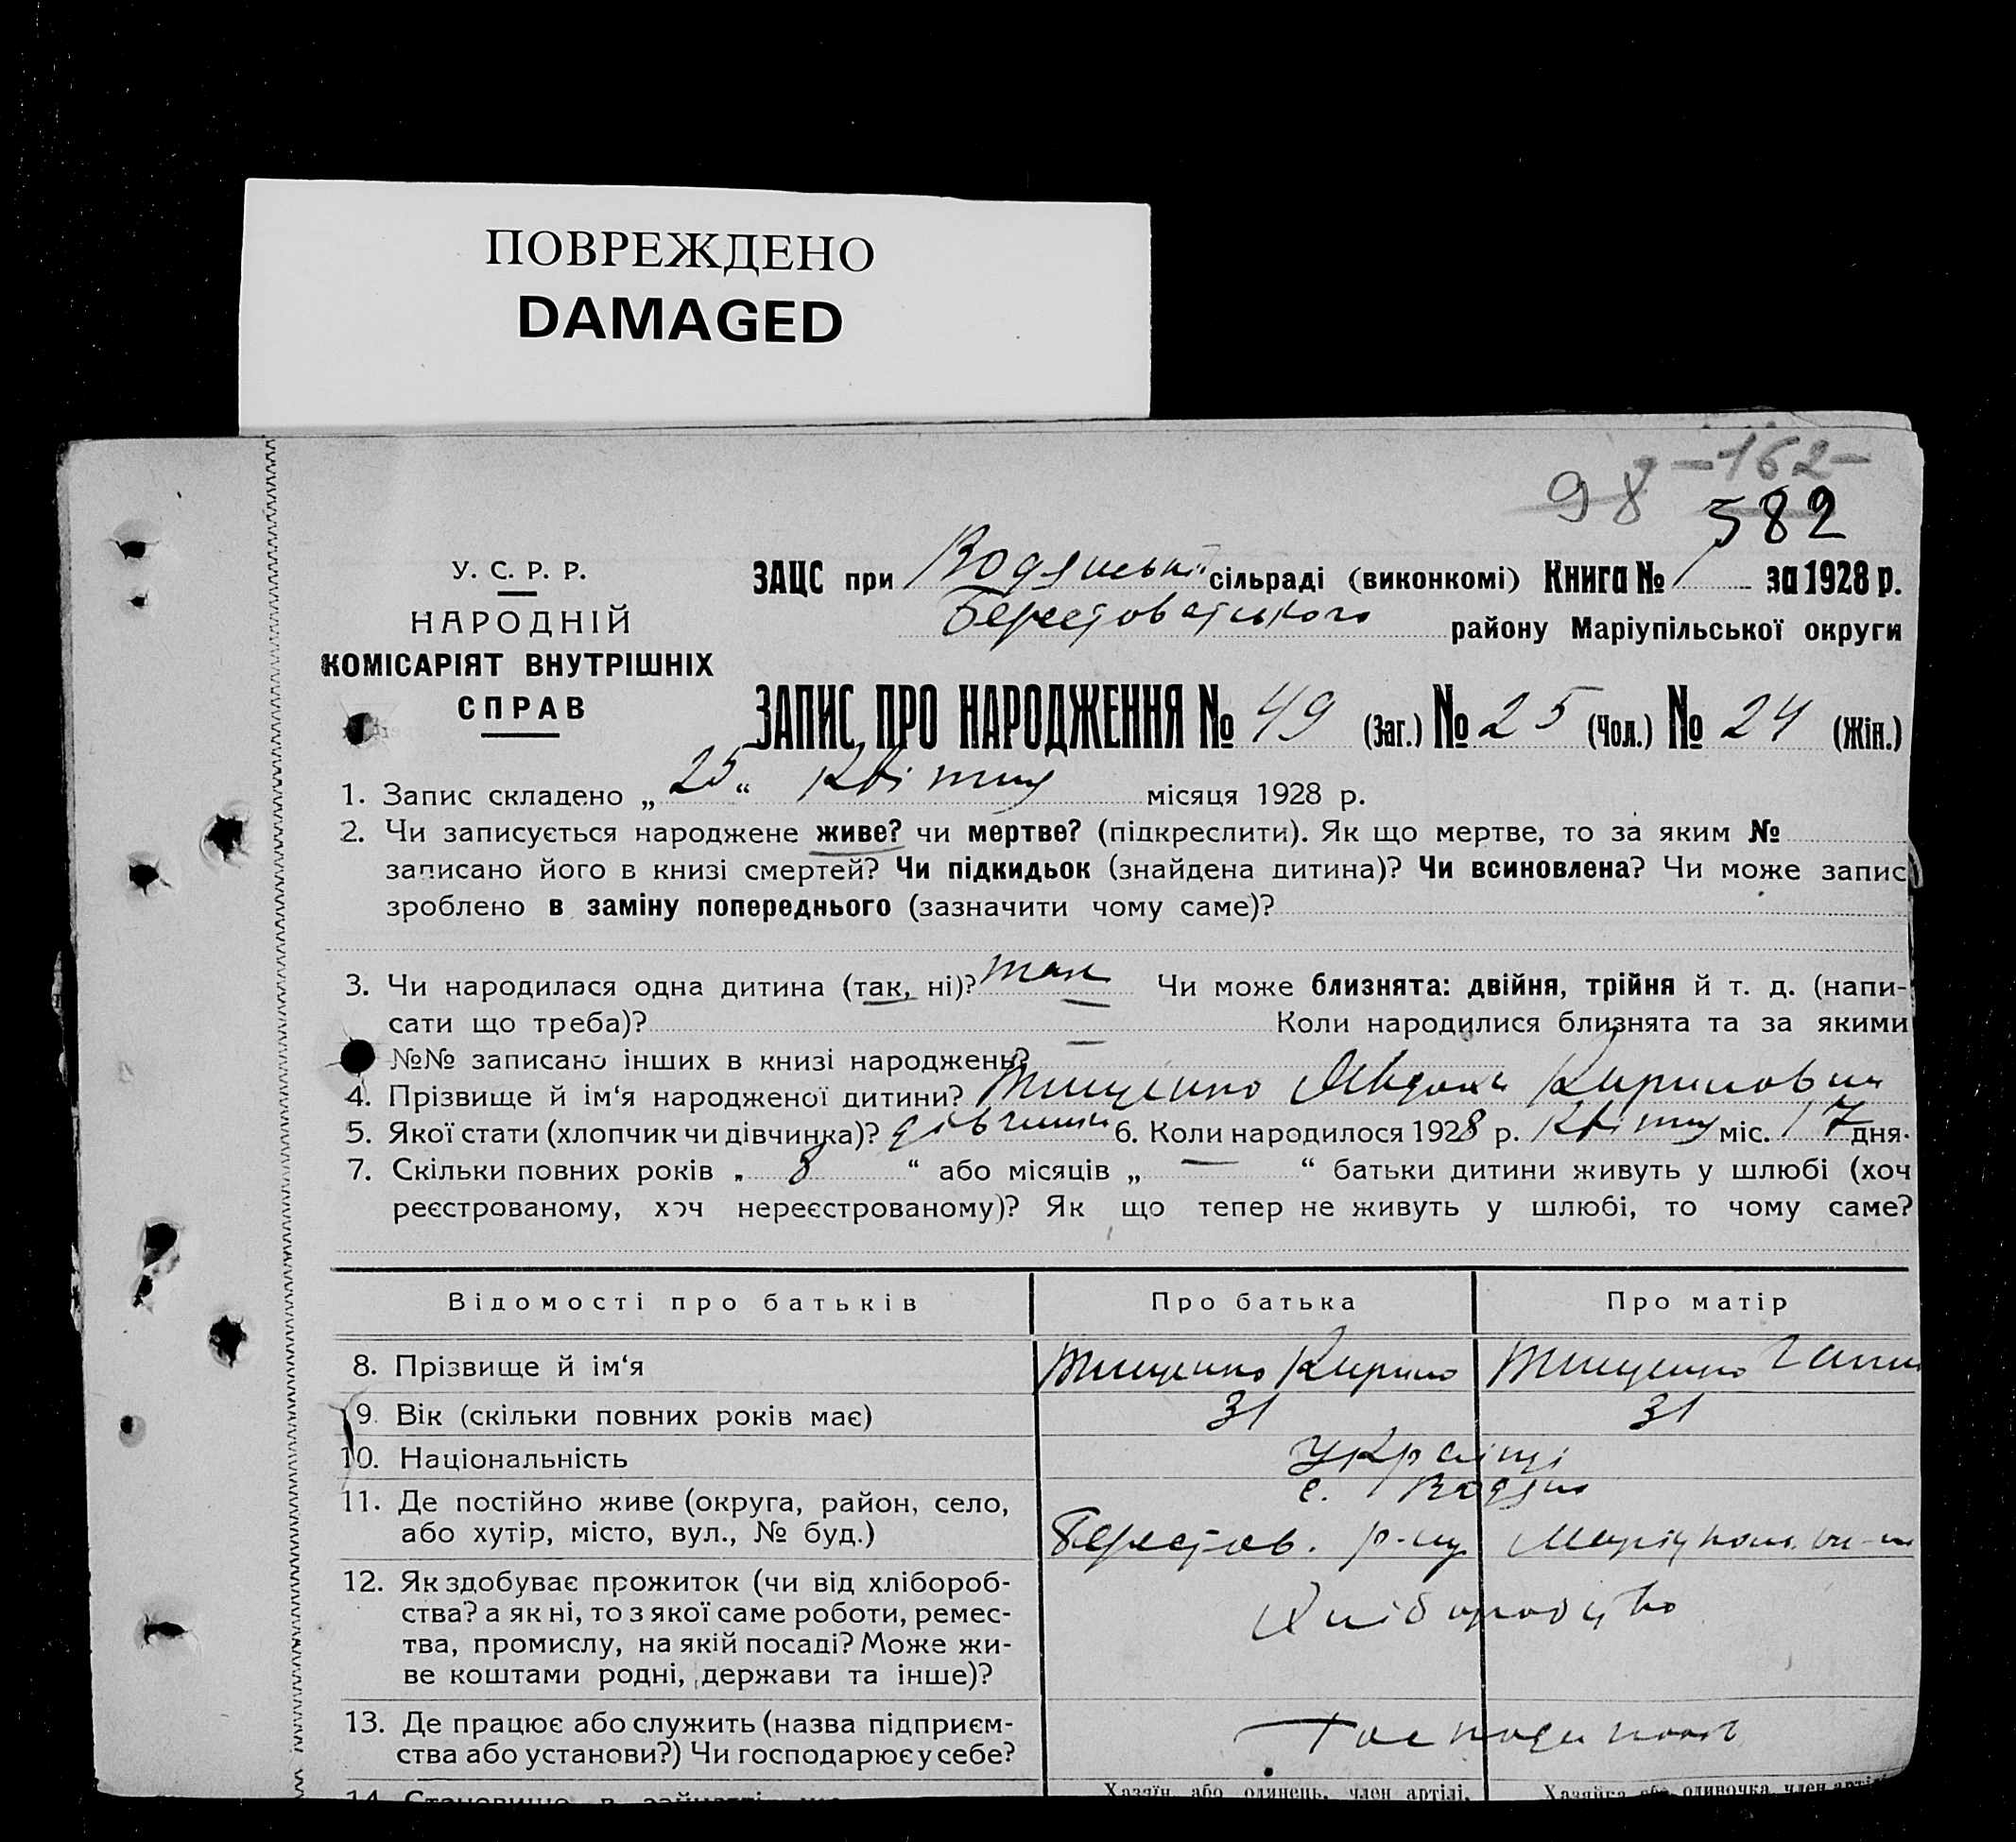 ПОВРЕЖДЕНО
DAMAGED
-162-
98
582
У. С. Р. Р.
НАРОДНІЙ
КОМІСАРІЯТ ВНУТРІШНІХ
СПРАВ
ЗАЦС при Водянській сільраді (виконкомі) Книга № 1 за 1928 р.
Берестоватського району Маріупільської округи
ЗАПИС ПРО НАРОДЖЕННЯ № 49 (Заг.) № 25 (Чол.) № 24 (Жін.)
1. Запис складено „ 25 “ Квітня місяця 1928 р.
2. Чи записується народжене живе? чи мертве? (підкреслити). Як що мертве, то за яким №
записано його в книзі смертей? Чи підкидьок (знайдена дитина)? Чи всиновлена? Чи може запис
зроблено в заміну попереднього (зазначити чому саме)?
3. Чи народилася одна дитина (так, ні)? так Чи може близнята: двійня, трійня й т. д. (напи-
сати що треба)? — Коли народилися близнята та за якими
№№ записано інших в книзі народжень? —
4. Прізвище й ім‘я народженої дитини? Тищенко Кириловна
5. Якої стати (хлопчик чи дівчинка)? дівчинка 6. Коли народилося 1928 р. Квітня міс. 17 дня.
7. Скільки повних років „ 8 “ або місяців „ — “ батьки дитини живуть у шлюбі (хоч
реєстрованому, хоч нереєстрованому)? Як що тепер не живуть у шлюбі, то чому саме?
Відомості про батьків Про батька Про матір
8. Прізвище й ім‘я Тищенко Кирило Тищенко Ганна
9. Вік (скільки повних років має) 31 31
10. Національність Українці
11. Де постійно живе (округа, район, село, с. Водяно
або хутір, місто, вул., № буд.) Берестов. р-ну Маріупол. ок-и
12. Як здобуває прожиток (чи від хлібороб-
ства? а як ні, то з якої саме роботи, ремес- Хліборобство
тва, промислу, на якій посаді? Може жи-
ве коштами родні, держави та інше)?
13. Де працює або служить (назва підприєм-
ства або установи?) Чи господарює у себе?
14. Становище в
Хазяїн або одинець, член артілі, Хазяйка або одиночка, член артілі